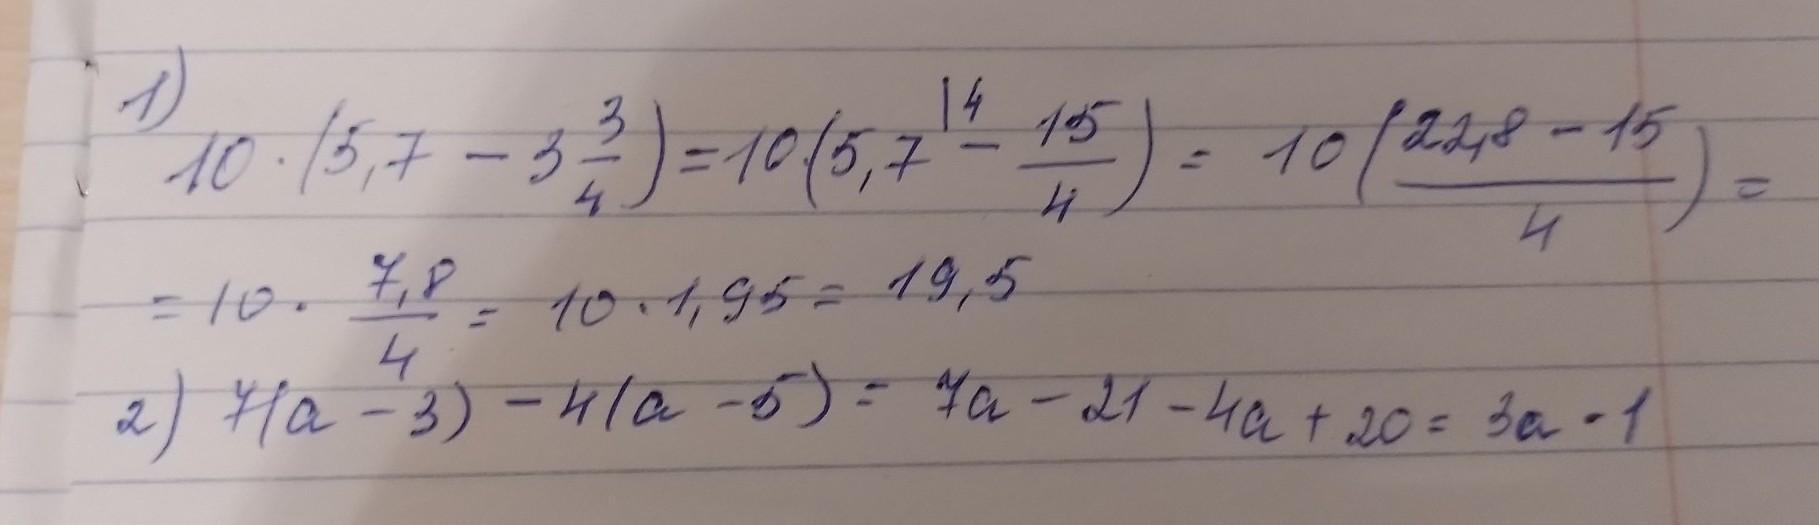 1)
10 · (5,7 - 3 3/4) = 10 · (5,7 |4 - 15/4) = 10 ( (22,8 - 15)/4 ) =
= 10 · 7,8/4 = 10 · 1,95 = 19,5
2) 7(a - 3) - 4(a - 5) = 7a - 21 - 4a + 20 = 3a - 1